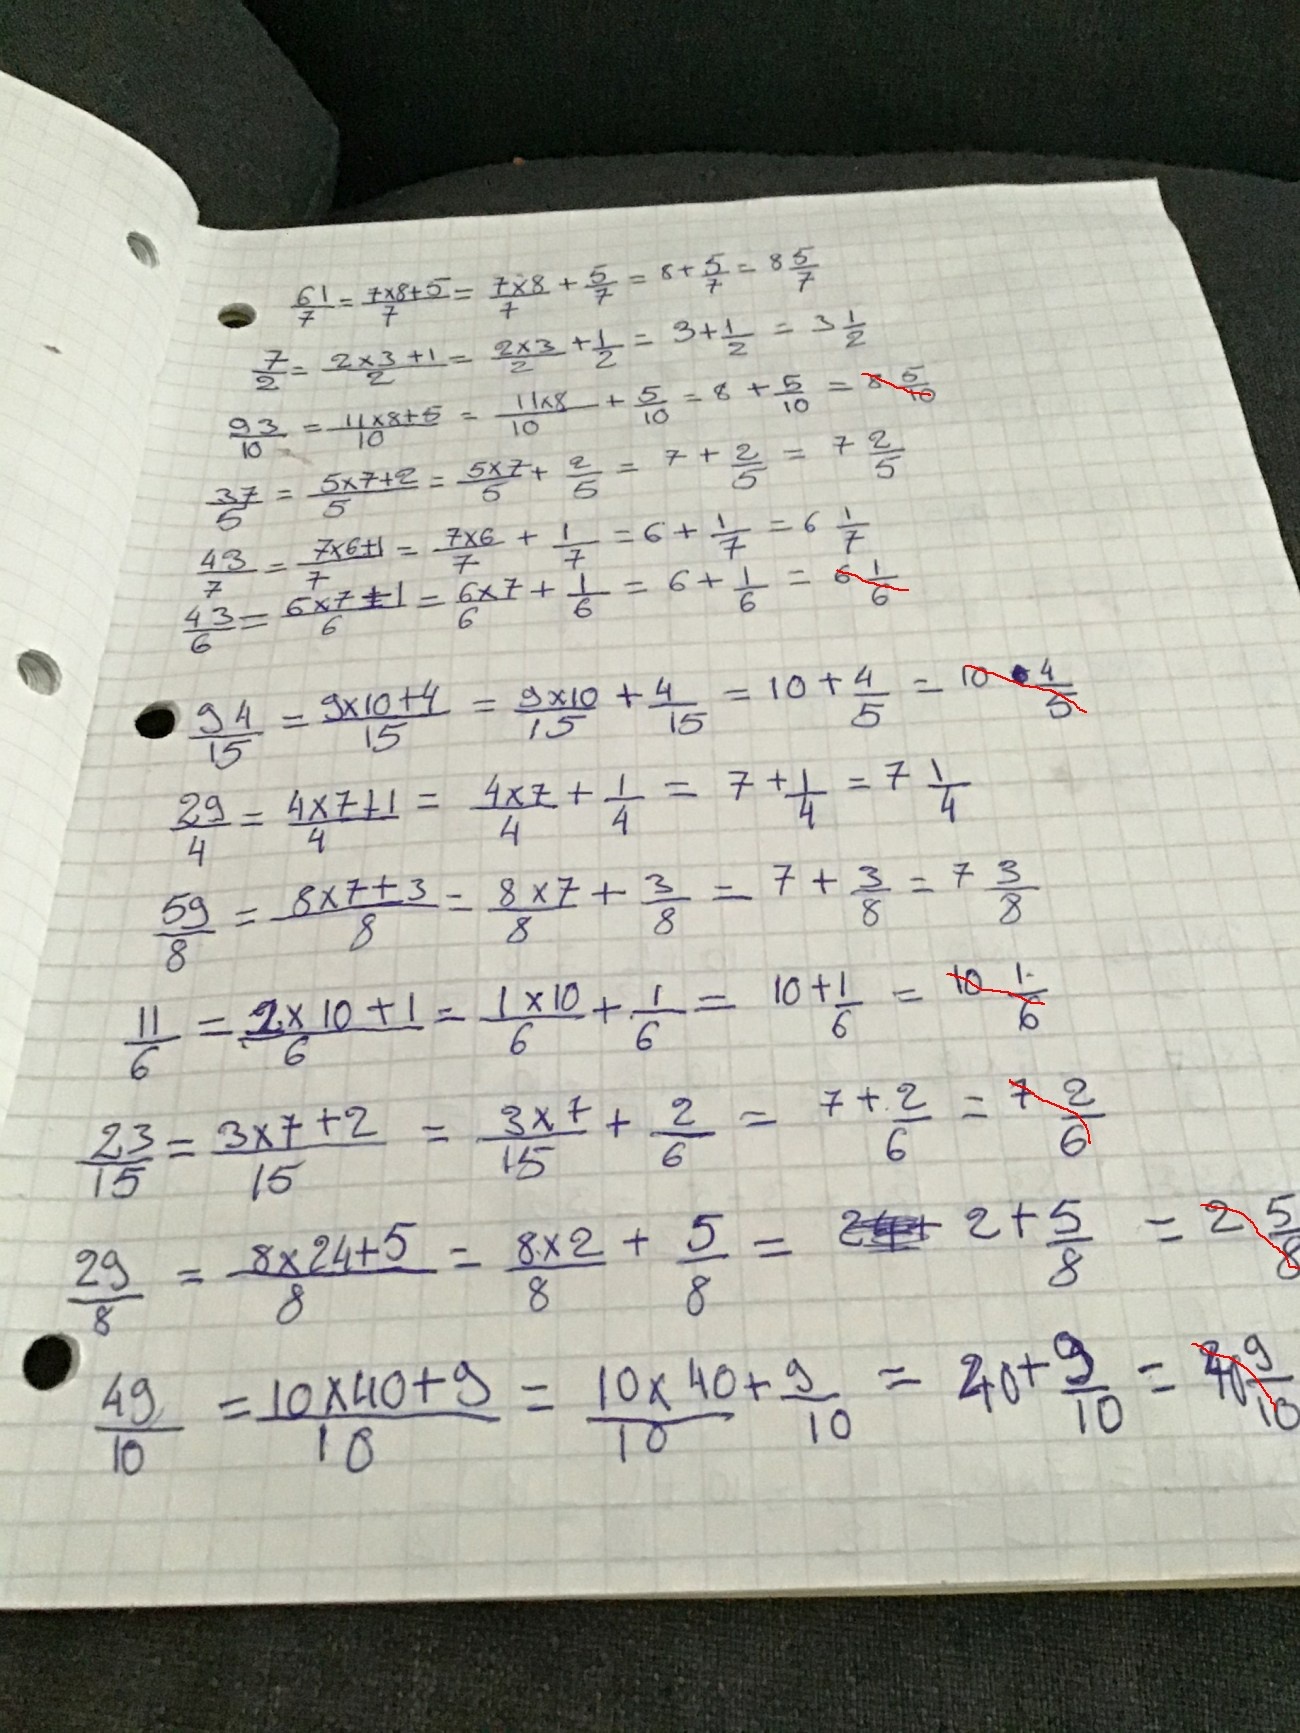 61/7 = 7x8+5/7 = 7x8/7 + 5/7 = 8 + 5/7 = 8 5/7
7/2 = 2x3+1/2 = 2x3/2 + 1/2 = 3 + 1/2 = 3 1/2
93/10 = 11x8+5/10 = 11x8/10 + 5/10 = 8 + 5/10 = 8 5/10
37/5 = 5x7+2/5 = 5x7/5 + 2/5 = 7 + 2/5 = 7 2/5
43/7 = 7x6+1/7 = 7x6/7 + 1/7 = 6 + 1/7 = 6 1/7
43/6 = 6x7+1/6 = 6x7/6 + 1/6 = 6 + 1/6 = 6 1/6
94/15 = 9x10+4/15 = 9x10/15 + 4/15 = 10 + 4/5 = 10 4/5
29/4 = 4x7+1/4 = 4x7/4 + 1/4 = 7 + 1/4 = 7 1/4
59/8 = 8x7+3/8 = 8x7/8 + 3/8 = 7 + 3/8 = 7 3/8
11/6 = 2x10+1/6 = 1x10/6 + 1/6 = 10 + 1/6 = 10 1/6
23/15 = 3x7+2/15 = 3x7/15 + 2/6 = 7 + 2/6 = 7 2/6
29/8 = 8x24+5/8 = 8x2/8 + 5/8 = 2 + 5/8 = 2 5/8
49/10 = 10x40+9/10 = 10x40/10 + 9/10 = 40 + 9/10 = 40 9/10